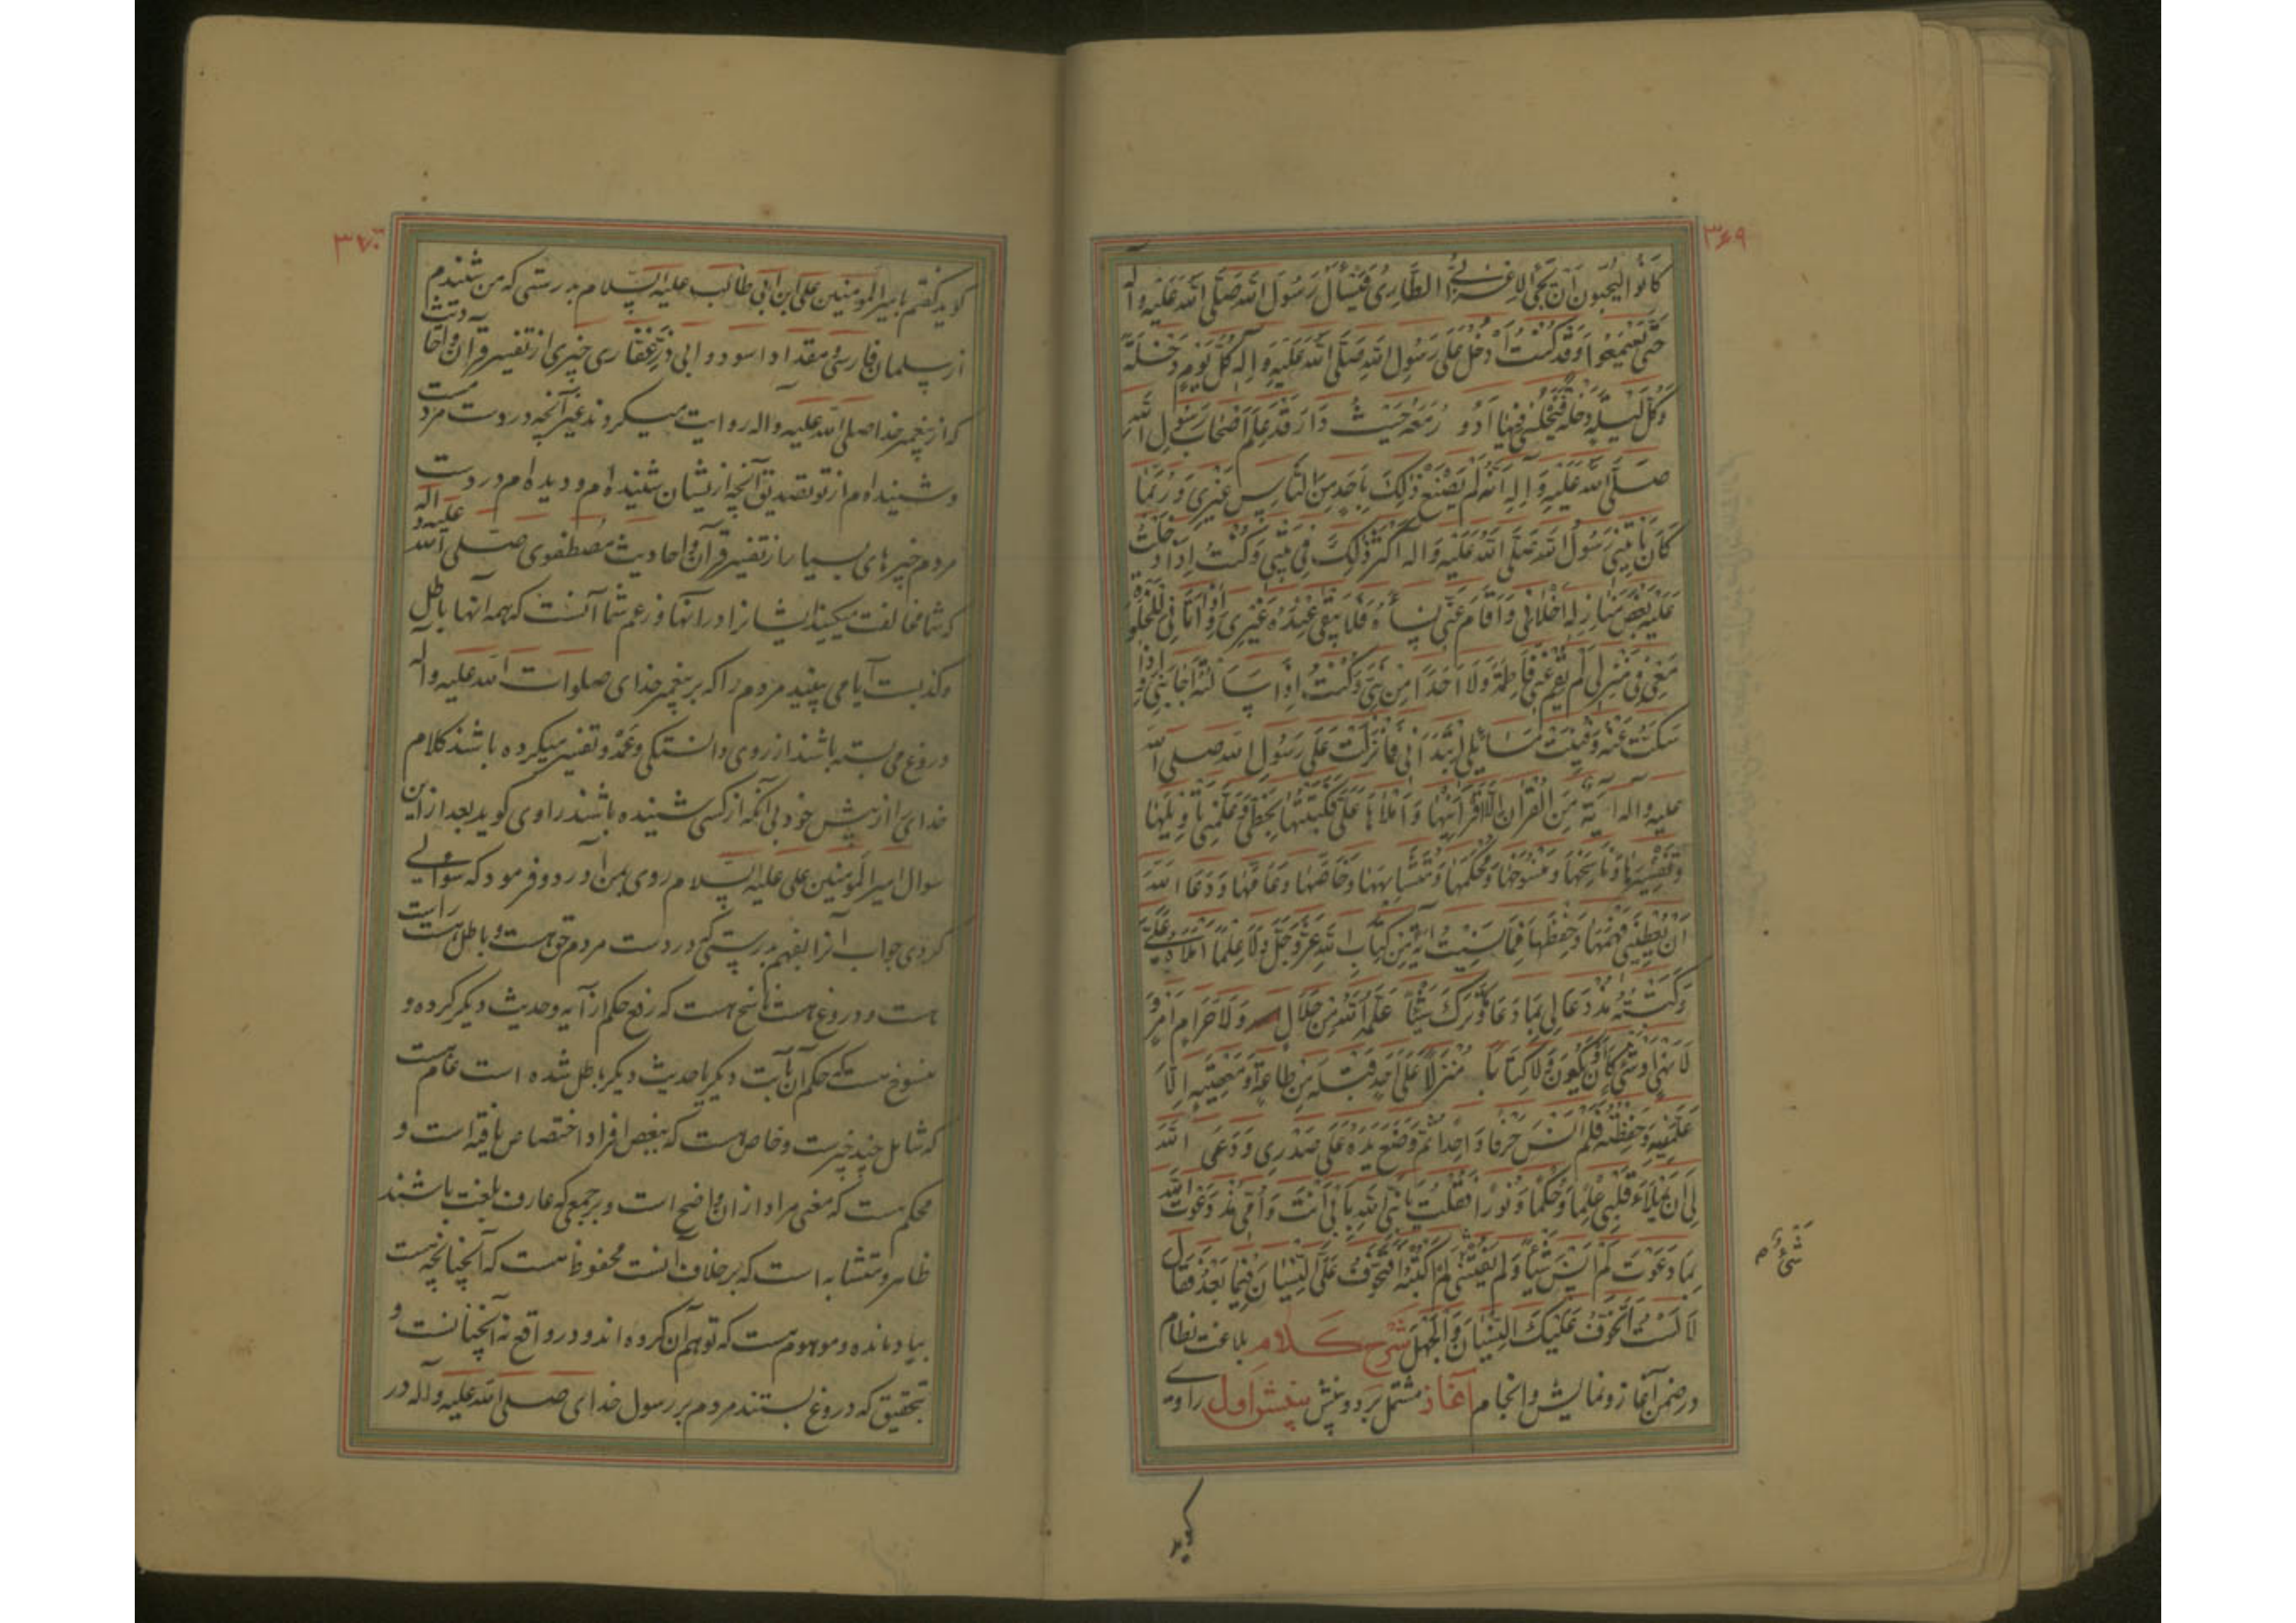 ۳۶۹
كانوا ليحبون ان يجئ الاعرابي الطاری فيسأل رسول الله صلى الله عليه وآله
حتى يسمعوا وقد كنت ادخل على رسول الله صلى الله عليه وآله كل يوم دخلة
وكل ليلة دخلة فيخليني فيها ادو رمعه حيث دار قد علم اصحاب رسول الله
صلى الله عليه وآله انه لم يصنع ذلك باحد من الناس غيري وربما
كان يأتيني رسول الله صلى الله عليه واله اكثر ذلك في بيتي وكنت اذا دخلت
عليه بعض منازله اخلاني واقام عني نساءه فلا يبقى عنده غيري واذا اتاني للخلوة
معي في منزلي لم تقم عني فاطمة ولا احدا من بني وكنت اذا سالته اجابني واذا
سكت عنه وفنيت مسائلي ابتداني فما نزلت على رسول الله صلى الله
عليه واله آية من القرآن الا اقرأنيها واملاها علي فكتبتها بخطي وعلمني تأويلها
وتفسيرها وناسخها ومنسوخها ومحكمها ومتشابهها وخاصها وعامها ودعا الله
ان يعطيني فهمها وحفظها فما نسيت آية من كتاب الله عز وجل ولا علما املاه علي
وكتبته منذ دعا لي بما دعا وما ترك شيئا علمه الله من حلال ولا حرام امر و
لا نهي او شئ كان او يكون ولا كتابا منزلا على احد قبله من طاعة او معصية الا
علمنيه وحفظته فلم انس حرفا واحدا ثم وضع يده على صدري ودعى الله
لی ان يملاء قلبي علما وحكما ونورا فقلت يا نبي الله بابي انت وامي منذ دعوت الله
بما دعوت لم انس شيئا ولم يفتني شئ لم اكتبه افتخوف علي النسيان فيما بعد فقال
لا لست اتخوف عليك النسيان والجهل شرح کلام بلاغت نظام
در ضمن آغاز و نمایش و انجام آغاز مشتمل بر دو بینش بینش اول راوی
شئ
گوید
۳۷۰
گوید گفتم بامیر المومنین علی ابن ابی طالب علیه السلام بدرستی که من شنیدم
از سلمان فارسی و مقداد اسود و ابی ذر غفاری چیزی از تفسیر قرآن و احادیث
که از پیغمبر خدا صلی الله علیه واله روایت میکردند غیر آنچه در دست مردمست
و شنیده‌ام از تو تصدیق آنچه از ایشان شنیده‌ام و دیده‌ام در دست
مردم خبرهای بسیار از تفسیر قرآن و احادیث مصطفوی صلی الله علیه و اله
که شما مخالفت میکنید ایشانرا در آنها و زعم شما آنست که همه آنها باطل
و کذبست آیا می بینید مردم را که بر پیغمبر خدای صلوات الله علیه و آله
دروغ می بسته باشند از روی دانستگی و عمد و تفسیر میکرده باشند کلام
خدایرا از پیش خود بی آنکه از کسی شنیده باشند راوی گوید بعد از این
سوال امیر المومنین علی علیه السلام روی بمن آورد و فرمود که سوالی
کردی جواب آنرا بفهم بدرستیکه در دست مردم حق هست و باطل هست راست
هست و دروغ هست ناسخ هست که رفع حکم از آیه و حدیث دیگر کرده و
منسوخ هست که حکم آن بآیت دیگر یا حدیث دیگر باطل شده است عام هست
که شامل چند چیزست و خاص هست که ببعض افراد اختصاص یافته است و
محکم هست که معنی مراد از ان واضح است و بر جمعی که عارف بلغت باشند
ظاهر و متشابه است که بر خلاف انست محفوظ هست که آنچنانچه هست
بیاد مانده و موهوم هست که توهم آن کرده‌اند و در واقع نه آنچنانست و
بتحقیق که دروغ بستند مردم بر رسول خدای صلی الله علیه و آله در